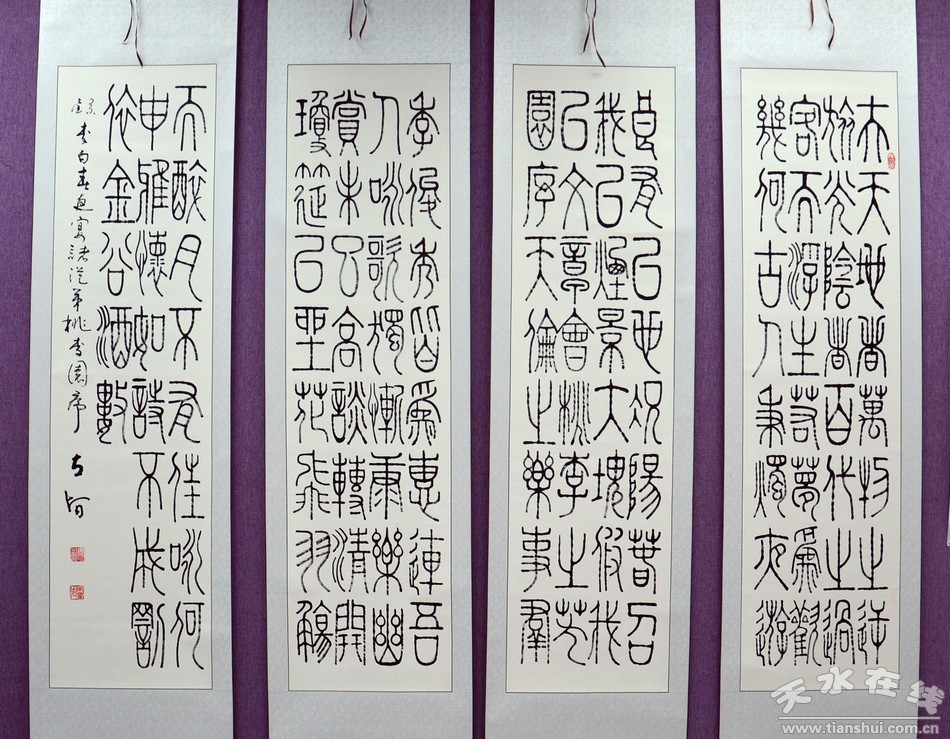 夫天地者萬物之逆
旅光陰者百代之過
客而浮生若夢為歡
幾何古人秉燭夜遊
良有以也況陽春召
我以煙景大塊假我
以文章會桃李之芳
園序天倫之樂事群
季俊秀皆為惠連吾
人詠歌獨慚康樂幽
賞未已高談轉清開
瓊筵以坐花飛羽觴
而醉月不有佳詠何
申雅懷如詩不成罰
依金谷酒數
錄李白春夜宴諸從弟桃李園序
天水在线
www.tianshui.com.cn